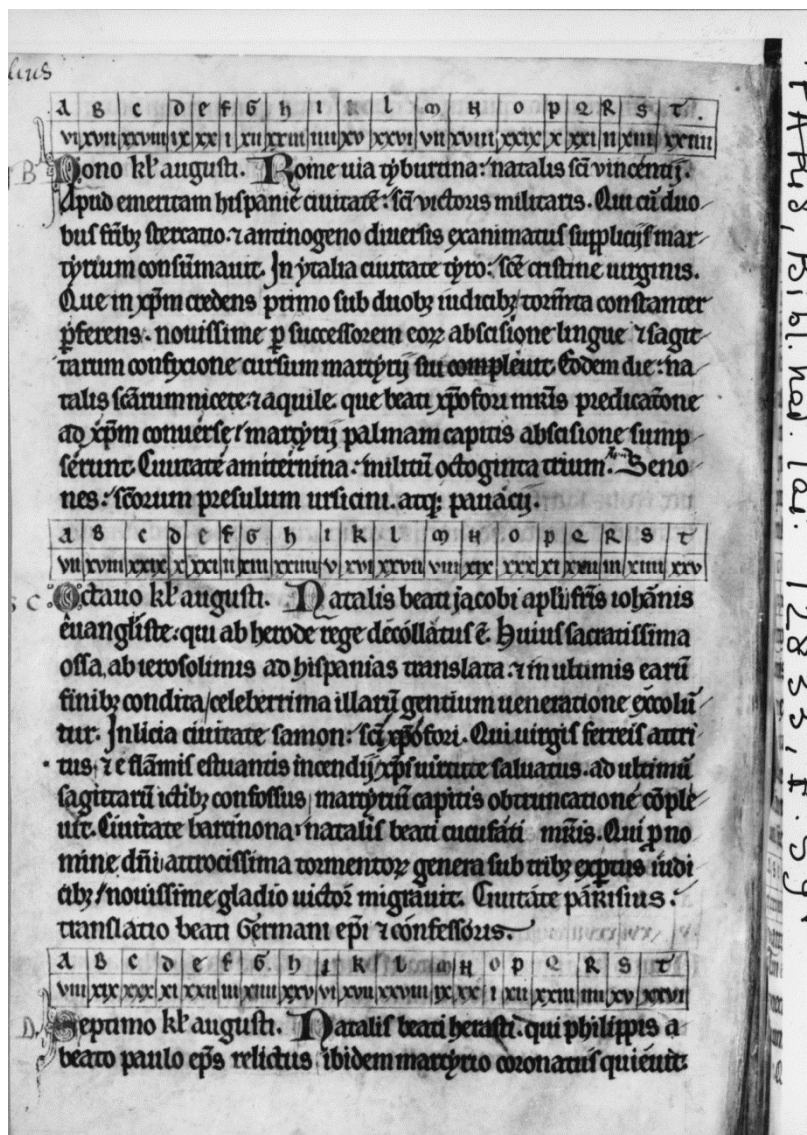 lius
A B C d e f G h i k l m N o p Q R S T.
vi xvii xxviii ix xx i xii xxiii iiii xv xxvi vii xviii xxix x xxi ii xiii xxiiii
B Nono kł augusti. Rome uia tyburtina: natalis sci vincentij.
Apud emeritam hispanie ciuitatē: sci victoris militaris. Qui cū duo
bus fr̄ib; stercatio. ⁊ antinogeno diuersis exanimatus supplicijs mar
tyrium consūmauit. In ytalia ciuitate tyro: sce cristine uirginis.
Que in xp̄m credens primo sub duob; iudicib; torm̄ta constanter
p̄ferens. nouissime p successorem eoꝝ abscisione lingue ⁊ sagit
tarum confixione cursum martyrij sui compleuit. Eodem die: na
talis scārum nicete. ⁊ aquile. que beati xp̄ofori mr̄is predicatōne
ad xp̄m conuerse / martyrij palmam capitis abscisione sump
serunt. Ciuitate amiternina: militū octoginta trium. Seno
nes: scōrum presulum ursicini. atq; pauacij.
A B C d e f G h i k l m N o p Q R S T
vii xviii xxix x xxi ii xiii xxiiii v xvi xxvii viii xix xxx xi xxii iii xiiii xxv
C Octauo kł augusti. Natalis beati jacobi apli fr̄is iohānis
euangliste: qui ab herode rege decollatus ē. Huius sacratissima
ossa, ab ierosolimis ad hispanias translata. ⁊ in ultimis earū
finib; condita / celeberrima illarū gentium ueneratione excolū
tur. In licia ciuitate samon: sci xp̄ofori. Qui uirgis ferreis attri
tus, ⁊ e flāmis estuantis incendij xp̄i uirtute saluatus. ad ultimū
sagittarū ictib; confossus / martyriū capitis obtruncatione cōple
uit. Ciuitate barcinona: natalis beati cucufati mr̄is. Qui p no
mine dn̄i attrocissima tormentoꝝ genera sub trib; exptus iudi
cib; / nouissime gladio uictor migrauit. Ciuitate parisius:
translatio beati Germani ep̄i ⁊ confessoris.
A B C d e f G h i k l m N o p Q R S T
viii xix xxx xi xxii iii xiiii xxv vi xvii xxviii ix xx i xii xxiii iiii xv xxvi
D Septimo kł augusti. Natalis beati herasti. qui philippis a
beato paulo ep̄s relictus ibidem martyrio coronatus quieuit.
PARIS, Bibl. nat. lat. 12833, f. 59v